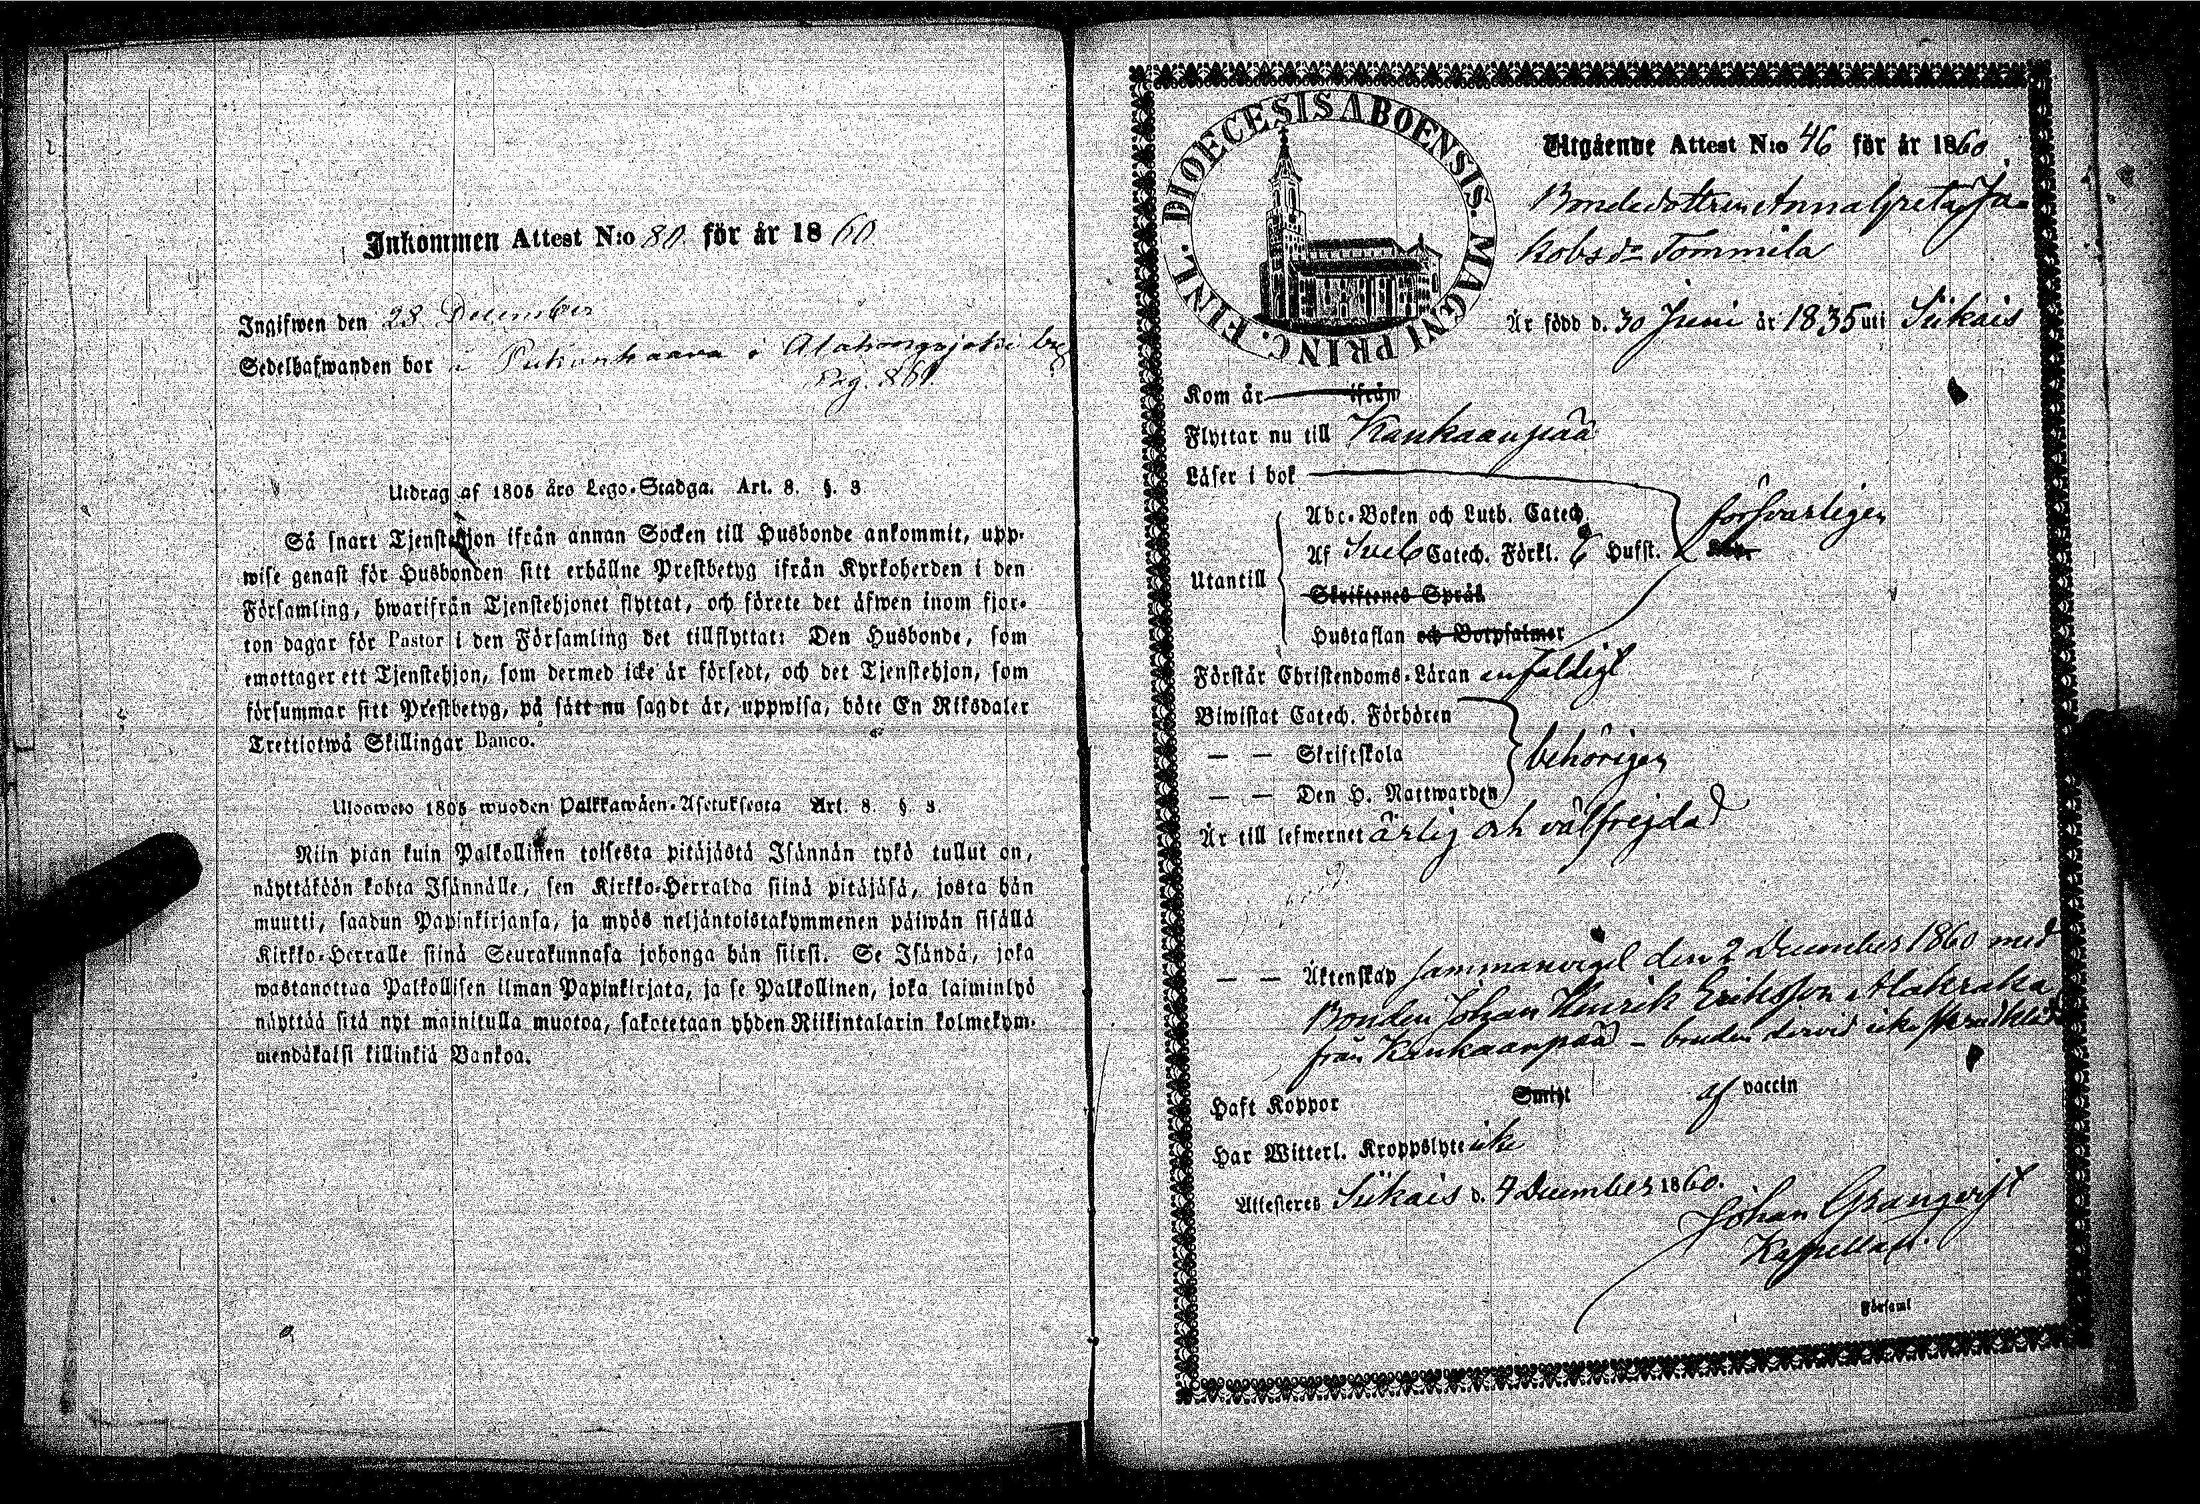 Inkommen Attest N:o 80 för år 1860
Ingifwen den 28 December
Sedelhafwanden bor i
Pag.
Utdrag af 1805 års Lego-Stadga. Art. 8. §. 3
Så snart Tjenstehjon ifrån annan Socken till Husbonde ankommit, upp-
wise genast för Husbonden sitt erhållne Prestbetyg ifrån Kyrkoherden i den
Församling, hwarifrån Tjenstehjonet flyttat, och förete det äfwen inom fjor-
ton dagar för Pastor i den Församling det tillflyttat: Den Husbonde, som
emottager ett Tjenstehjon, som dermed icke är försedt, och det Tjenstehjon, som
försummar sitt Prestbetyg, på sätt nu sagdt är, uppwisa, böte En Riksdaler
Trettiotwå Skillingar Banco.
Ulosweto 1805 wuoden Palkkawäen-Asetuksesta Art. 8. §. 3.
Niin pian kuin Palkollinen toisesta pitäjästä Isännän tykö tullut on,
näyttäköön kohta Isännälle, sen Kirkko-Herralda siinä pitäjäsä, josta hän
muutti, saadun Papinkirjansa, ja myös neljäntoistakymmenen päiwän sisällä
Kirkko-Herralle siinä Seurakunnasa johonga hän siirsi. Se Isändä, joka
wastanottaa Palkollisen ilman Papinkirjata, ja se Palkollinen, joka laiminlyö
näyttää sitä nyt mainitulla muotoa, sakotetaan yhden Riikintalarin kolmekym-
mendäkaksi killinkiä Bankoa.
DIOECESIS ABOENSIS. MAGNI PRINC. FINL.
Utgående Attest N:o 46 för år 1860
Bondedottren Anna Greta Ja-
kobsdr Tommila
Är född d. 30 Juni år 1835 uti Siikais
Kom år ifrån
Flyttar nu till Kankaanpää
Läser i bok
Abc-Boken och Luth. Catech. försvarligen
Utantill Af Sveb Catech. Förkl. Husst.
Skriftenes Språk
Hustaflan och Botpsalmer
Förstår Christendoms-Läran enfaldigt
Biwistat Catech. Förhören
— — Skriftskola behörigen
— — Den H. Nattwarden
Är till lefwernet ärlig och välfrejdad
— — Äktenskap sammanvigd den 2 December 1860 med
Bonden Johan Henrik Eriksson Alakraka
från Kankaanpää – bruden dervid icke
Haft Koppor Smitt af vaccin
Har Witterl. Kroppslyte icke
Attesteres Siikais d. 7 December 1860.
Johan Granqvist
Kapellan.
Församl